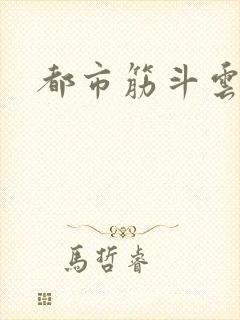 都市筋斗雲
馬哲睿